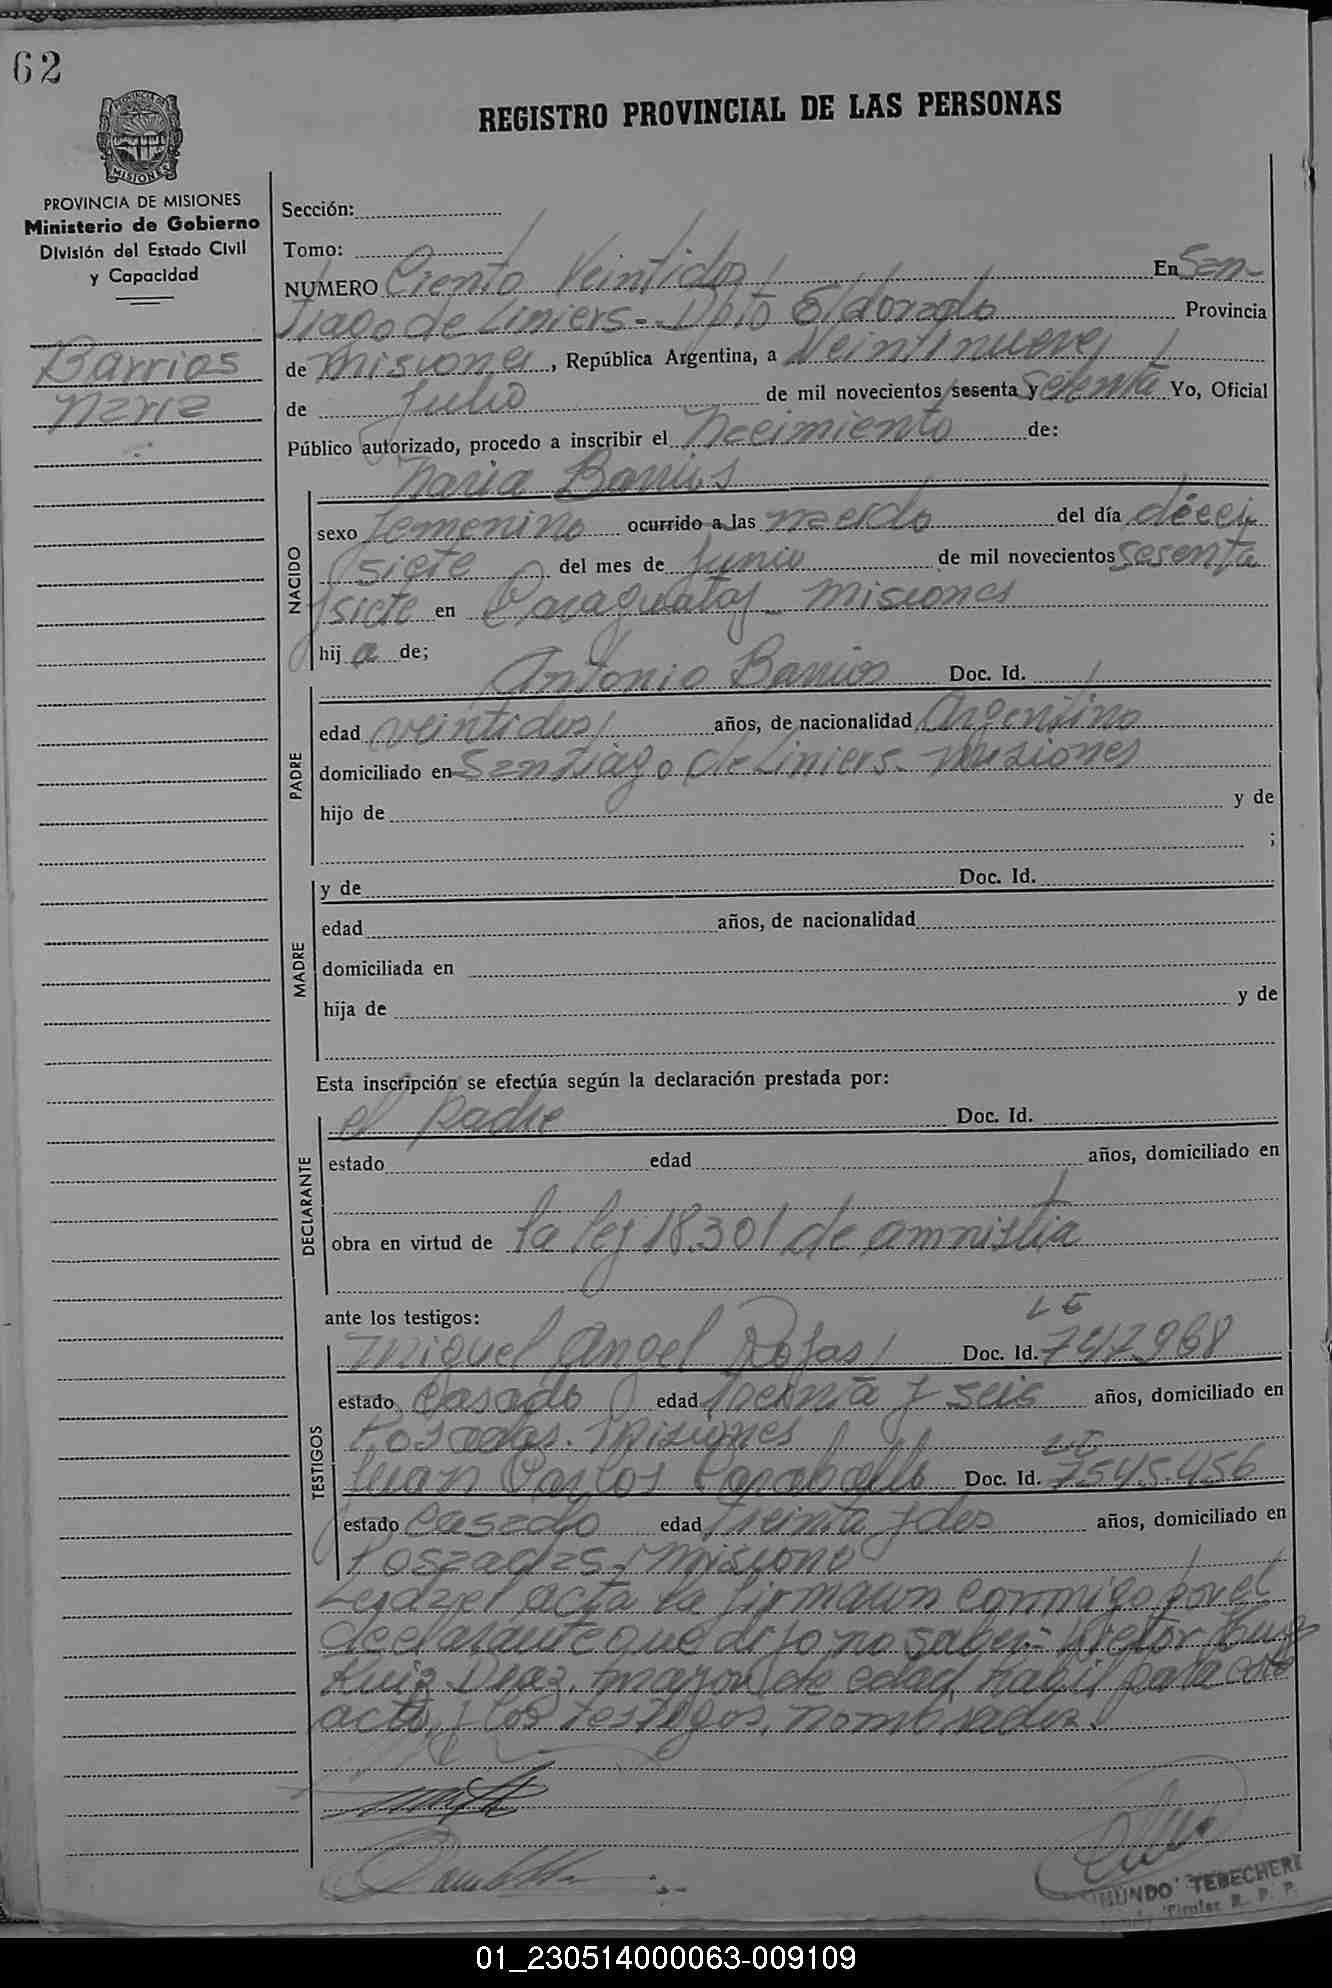 62
REGISTRO PROVINCIAL DE LAS PERSONAS
PROVINCIA DE MISIONES
MISIONES
PROVINCIA DE MISIONES
Ministerio de Gobierno
División del Estado Civil
y Capacidad
Barrios
Maria
Sección:
Tomo:
NUMERO Ciento Veintidos En San-
tiago de Liniers - Dpto Eldorado Provincia
de Misiones, República Argentina, a Veintinueve
de Julio de mil novecientos sesenta y setenta Yo, Oficial
Público autorizado, procedo a inscribir el Nacimiento de:
Maria Barrios
NACIDO
sexo femenino ocurrido a las nacido del día décei
siete del mes de Junio de mil novecientos sesenta
y siete en Caraguatay - Misiones
hij a de;
PADRE
Antonio Barrios Doc. Id.
edad veintidos años, de nacionalidad Argentino
domiciliado en Santiago de Liniers - Misiones
hijo de y de
;
MADRE
y de Doc. Id.
edad años, de nacionalidad
domiciliada en
hija de y de
Esta inscripción se efectúa según la declaración prestada por:
DECLARANTE
el padre Doc. Id.
estado edad años, domiciliado en
obra en virtud de la ley 18.301 de amnistia
ante los testigos:
TESTIGOS
L E
Miguel Angel Rojas Doc. Id. 7.417.968
estado Casado edad treinta y seis años, domiciliado en
Posadas. Misiones
LE
Juan Carlos Caraballo Doc. Id. 7.545.456
estado Casado edad treinta y dos años, domiciliado en
Poszadas - Misione
Leida el acta la firmaun conmigo por el
declarante que dijo no saber: Victor Hugo
Ruiz Diaz, mayor de edad, habil para este
acto, y los testigos, nombrados.
MUNDO TEBECHERI
Titular R. P. P.
01_230514000063-009109